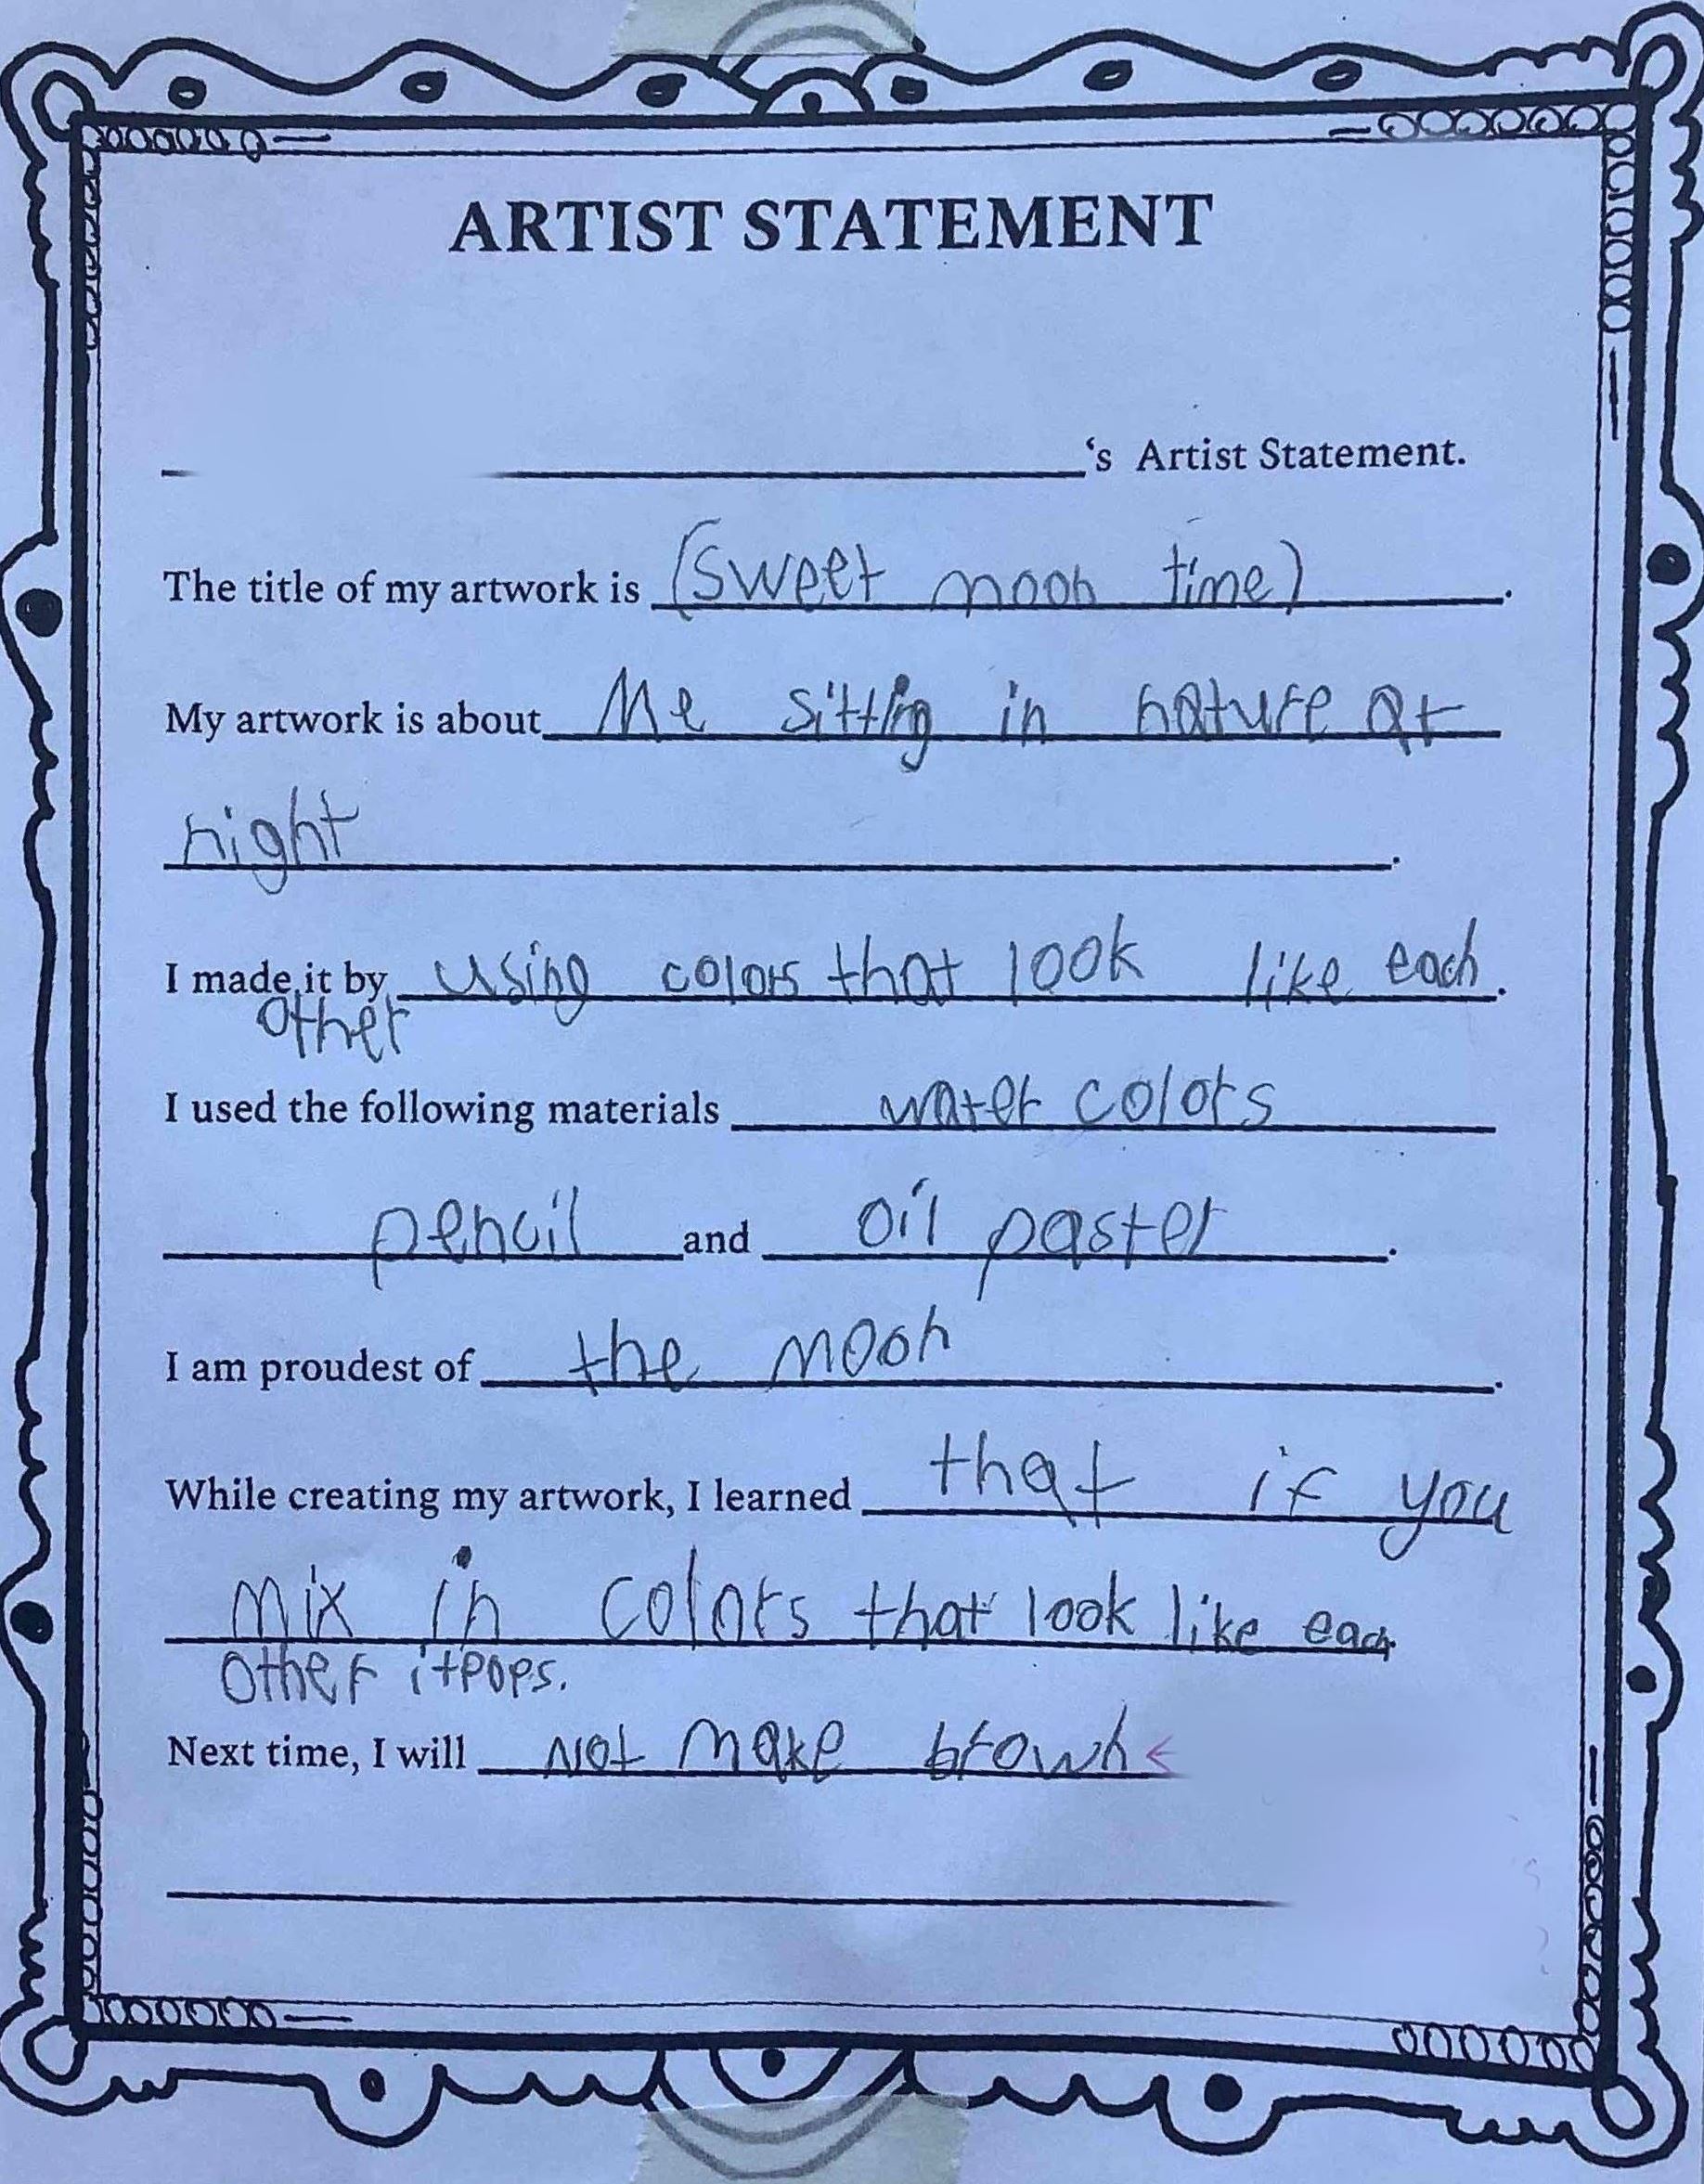 ARTIST STATEMENT
's Artist Statement.
The title of my artwork is (sweet moon time).
My artwork is about Me sitting in nature at
night.
I made it by using colors that look like each.
other
I used the following materials water colors
pencil and oil pastel.
I am proudest of the moon.
While creating my artwork, I learned that if you
mix in colors that look like each.
other it pops.
Next time, I will Not make brown